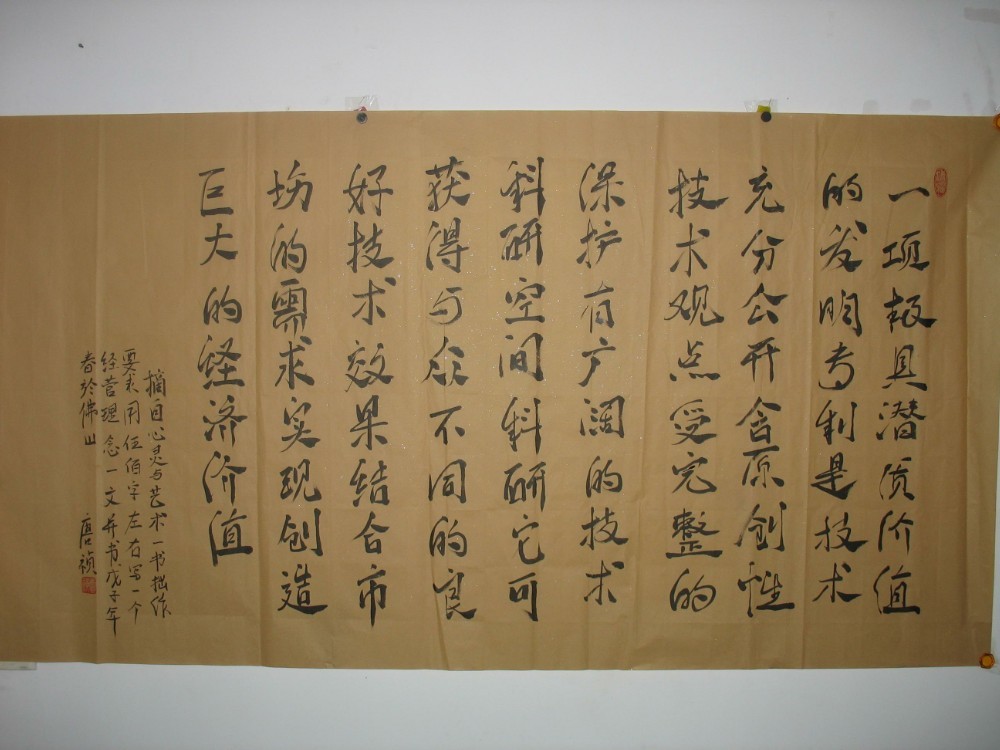 一项极具潜质价值
的发明专利是技术
充分公开含原创性
技术观点受完整的
保护有广阔的技术
科研空间科研它可
获得与众不同的良
好技术效果结合市
场的需求实现创造
巨大的经济价值
摘自心灵与艺术一书拙作
要求用伍佰字左右写一个
经营理念一文并书戊子年
春于佛山
唐祯